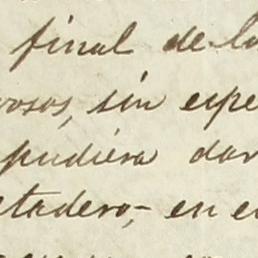 final de lo
osos, sin espe
pudiera dar
tadero, - en e